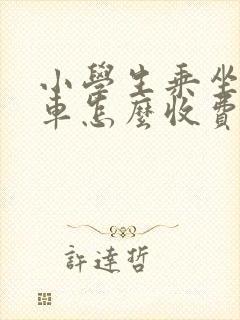 小學生乘坐
車怎麼收費
許達哲